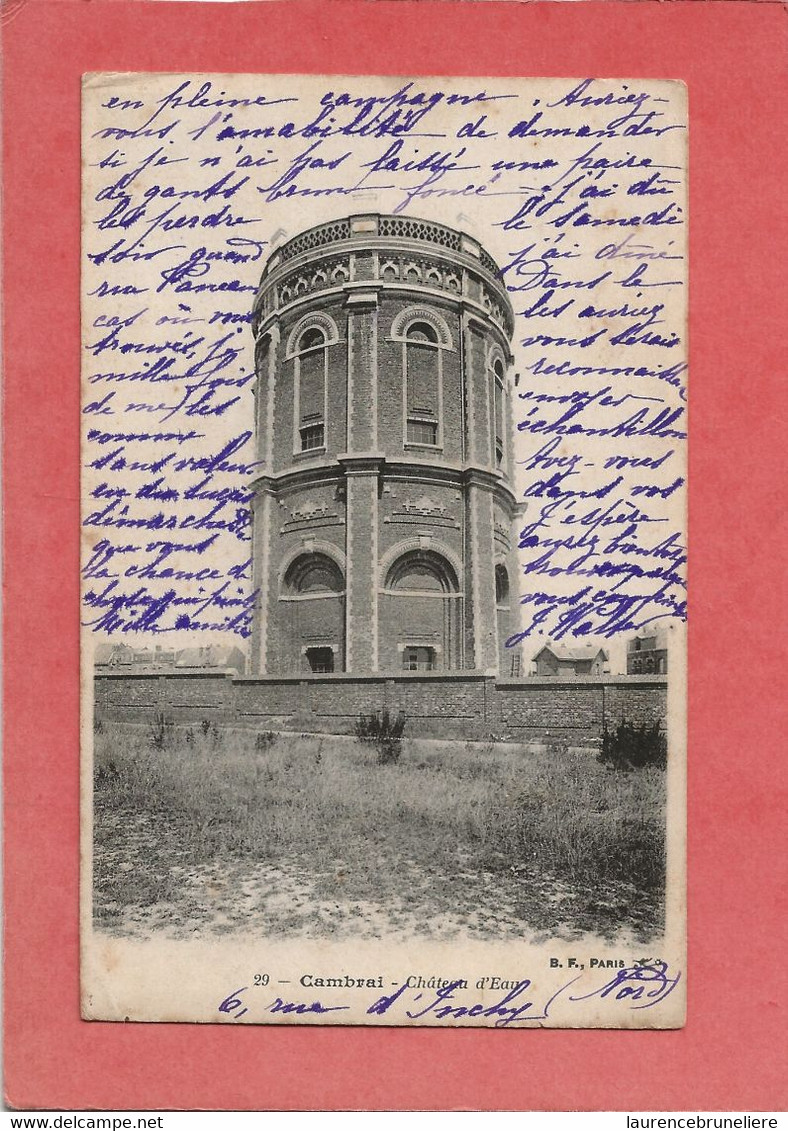 en pleine campagne. Auriez-
vous l'amabilité de demander
si je n'ai pas laissé une paire
de gants bruns foncé, j'ai dû
les perdre le Samedi
soir quand j'ai dîné
Dans le
cas où vous les auriez
trouvés, je vous serais
mille fois reconnaissant
de me les envoyer
comme échantillon
sans valeur
Avez-vous
dans vos
démarches J'espère
que vous aurez bientôt
la chance
Mille amitiés
J. Walter
B. F., PARIS
29 - Cambrai - Château d'Eau
6, rue d'Inchy (Nord)
laurencebruneliere.com